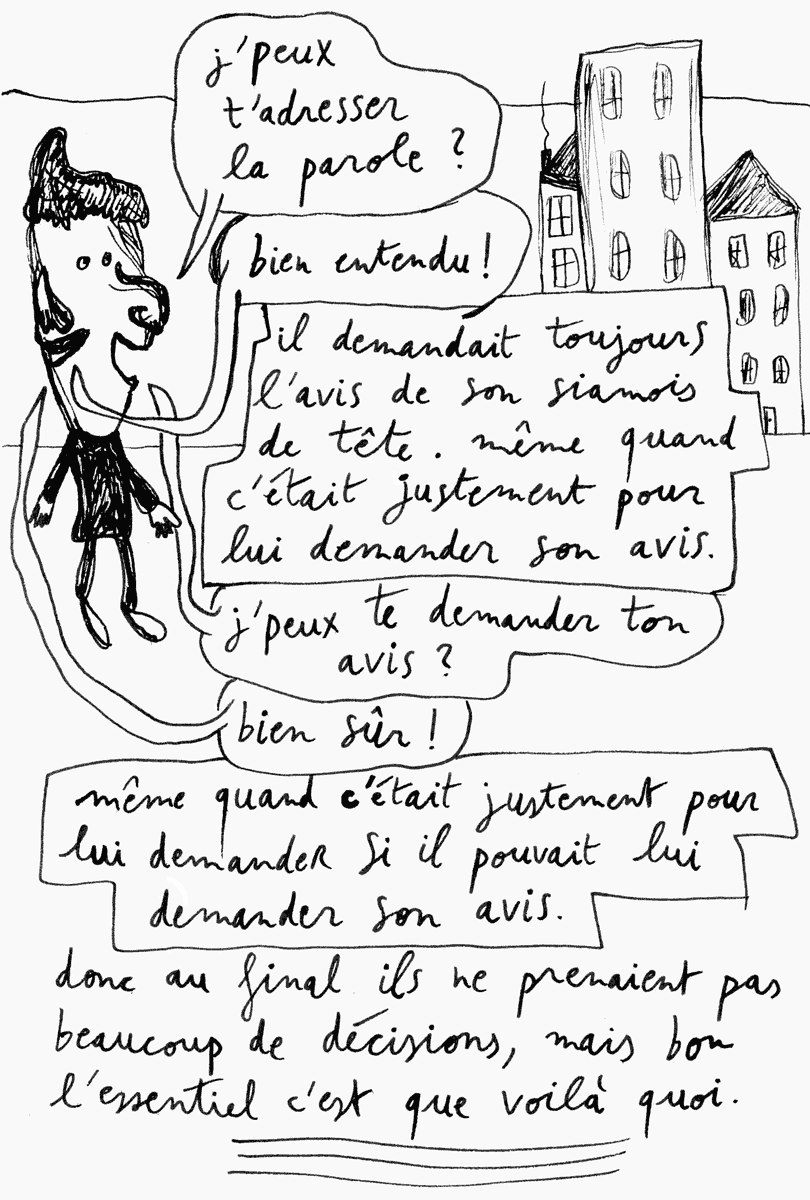 j'peux
t'adresser
la parole ?
bien entendu !
il demandait toujours
l'avis de son siamois
de tête. même quand
c'était justement pour
lui demander son avis.
j'peux te demander ton
avis ?
bien sûr !
même quand c'était justement pour
lui demander si il pouvait lui
demander son avis.
donc au final ils ne prenaient pas
beaucoup de décisions, mais bon
l'essentiel c'est que voilà quoi.